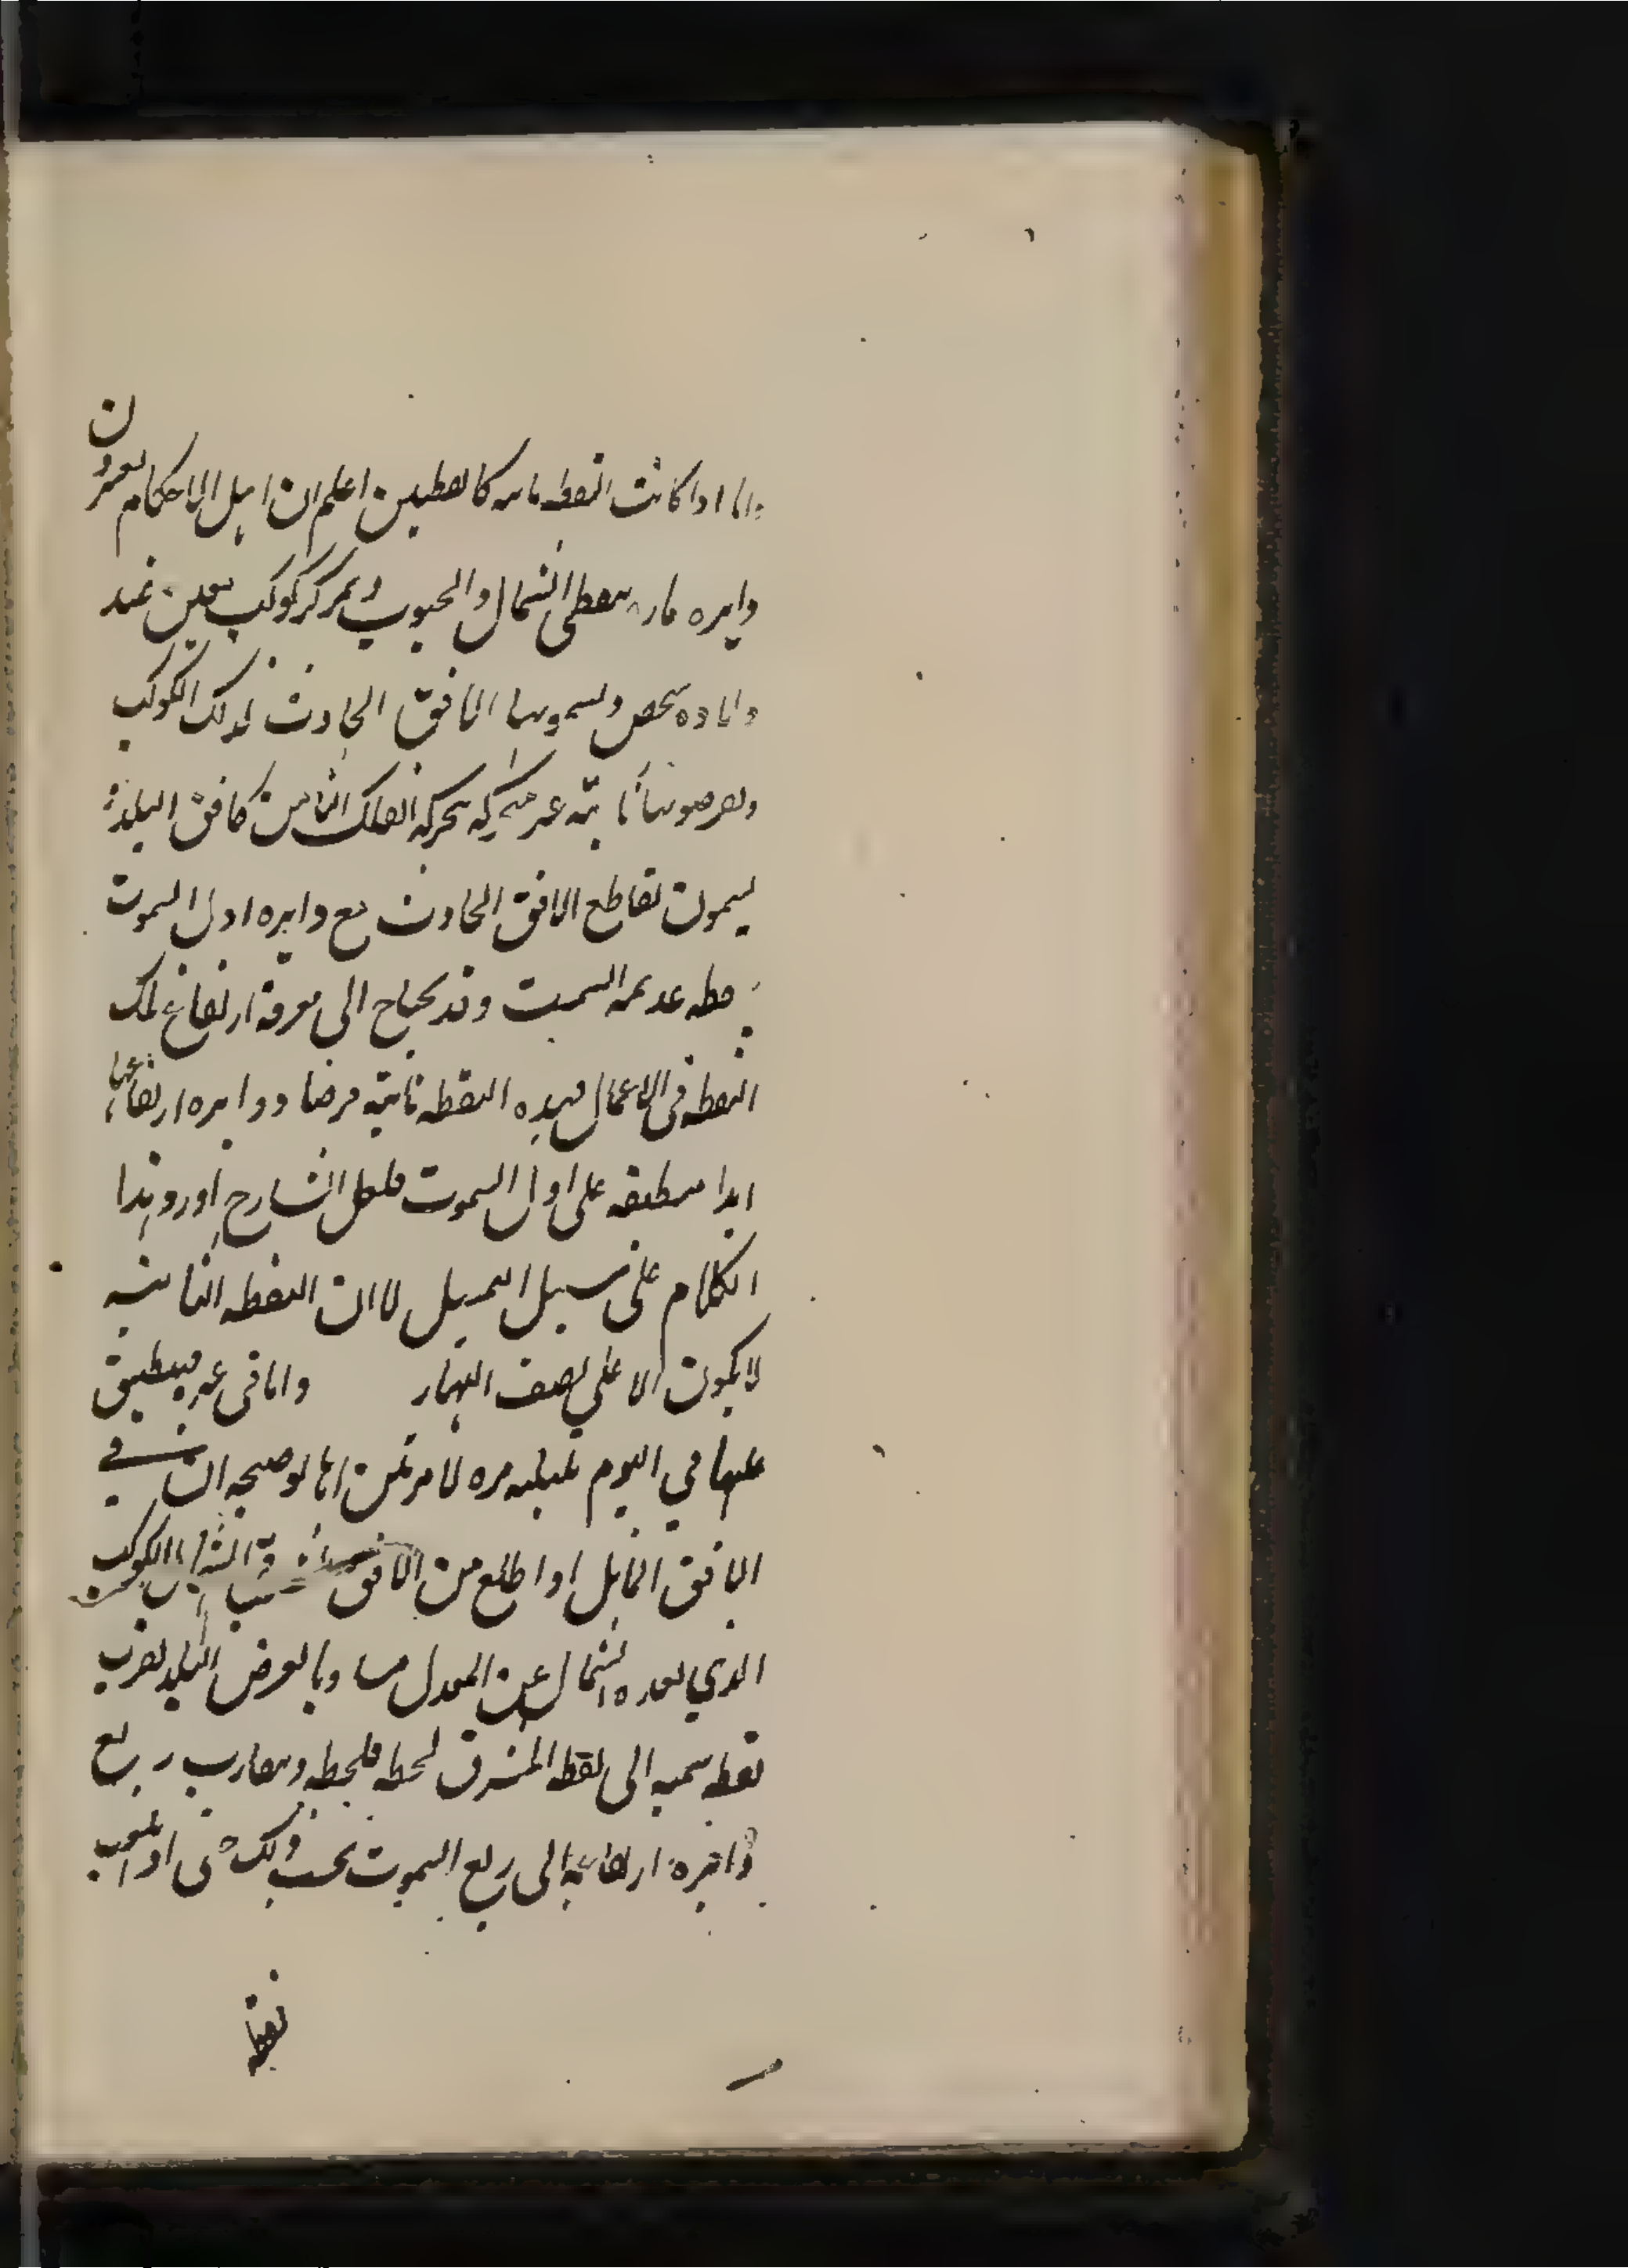 واما اذا كانت النقطه ثابته كالقطبين اعلم ان اهل الاحكام يفرضون
دايره ماره بنقطتي الشمال والجنوب وبمركز كوكب معين عند
ولاده شخص ويسمونها الافق الحادث لذلك الكوكب
ويفرضونها ثابته غير متحركه بحركه الفلك الثامن كافق البلد
يسمون تقاطع الافق الحادث مع دايره اول السموت
نقطه عديمه السمت وقد يحتاج الى معرفة ارتفاع تلك
النقطه في الاعمال فهذه النقطه ثابتة فرضا ودايره ارتفاعها
ابدا منطبقه على اول السموت فلعل الشارح اورد هذا
الكلام على سبيل التمثيل لا ان النقطه الثابته
لا يكون الا على نصف النهار والافق غير منطبق
عليها في اليوم بليلته مره لا مرتين اما توضيحه ان في
الافق المايل اذا طلع من الافق الكوكب
الذي بعده الشمالي عن المعدل مساويا لعرض البلد تقرب
نقطه سمته الى نقطه المشرق لحظه فلحظه ويتقارب ربع
دايره ارتفاعه الى ربع السموت بحسب ذلك حتى اذا بلغت
نقطه